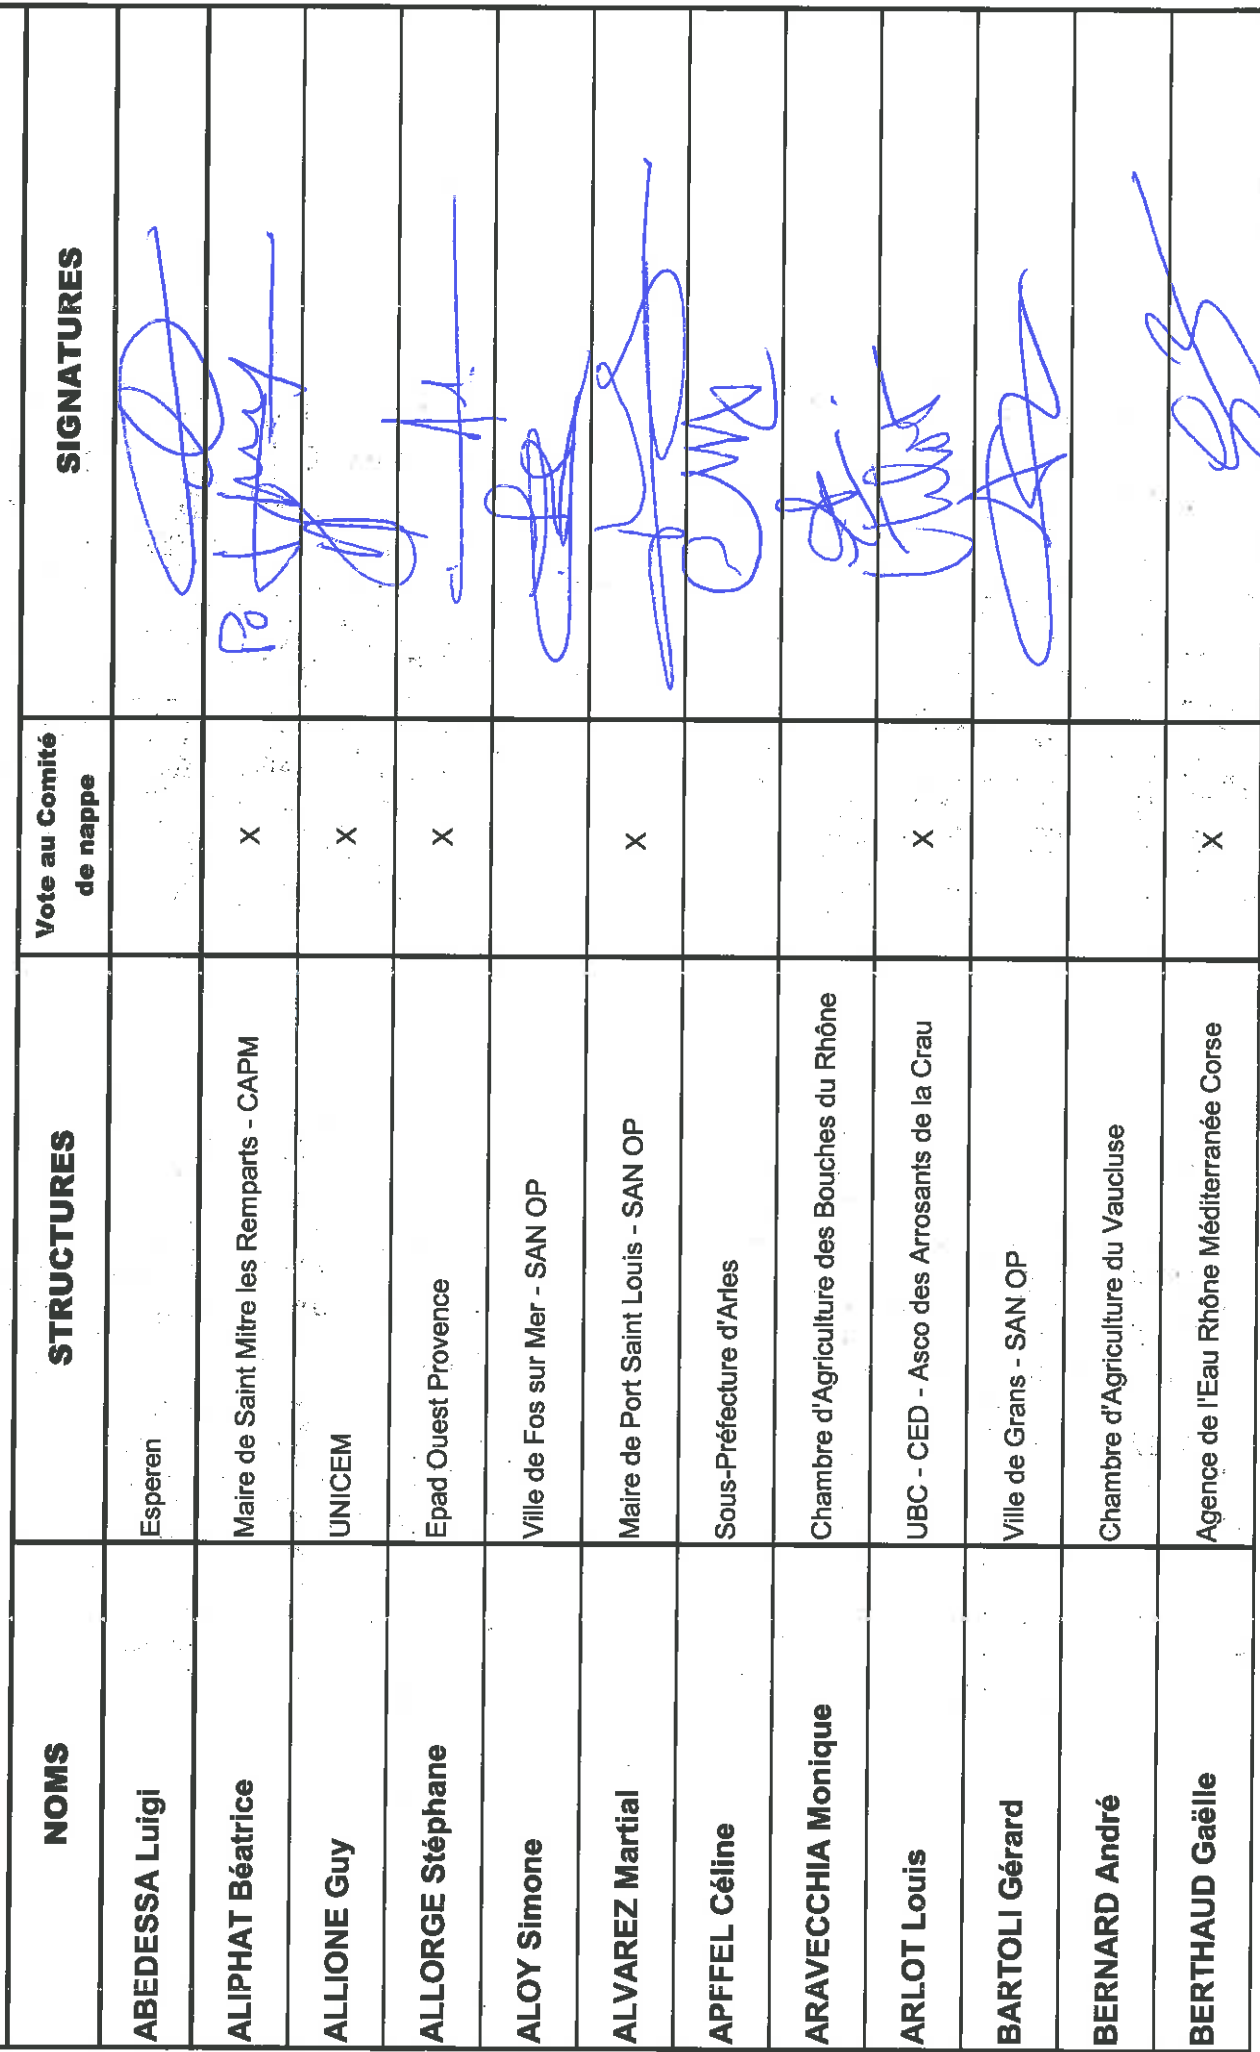 NOMS STRUCTURES Vote au Comité de nappe SIGNATURES
ABEDESSA Luigi Esperen
ALIPHAT Béatrice Maire de Saint Mitre les Remparts - CAPM X Po
ALLIONE Guy UNICEM X
ALLORGE Stéphane Epad Ouest Provence X
ALOY Simone Ville de Fos sur Mer - SAN OP
ALVAREZ Martial Maire de Port Saint Louis - SAN OP X
APFFEL Céline Sous-Préfecture d'Arles
ARAVECCHIA Monique Chambre d'Agriculture des Bouches du Rhône
ARLOT Louis UBC - CED - Asco des Arrosants de la Crau X
BARTOLI Gérard Ville de Grans - SAN OP
BERNARD André Chambre d'Agriculture du Vaucluse
BERTHAUD Gaëlle Agence de l'Eau Rhône Méditerranée Corse X